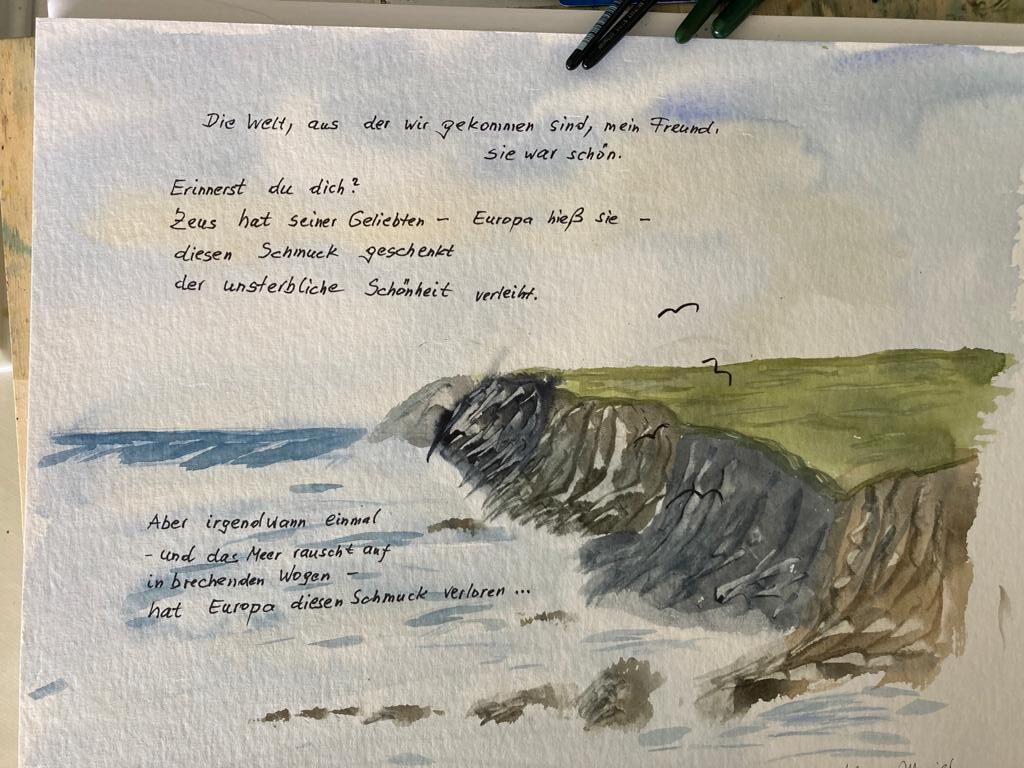 Die Welt, aus der wir gekommen sind, mein Freund,
sie war schön.
Erinnerst du dich?
Zeus hat seiner Geliebten – Europa hieß sie –
diesen Schmuck geschenkt
der unsterbliche Schönheit verleiht.
Aber irgendwann einmal
- und das Meer rauscht auf
in brechenden Wogen –
hat Europa diesen Schmuck verloren ...